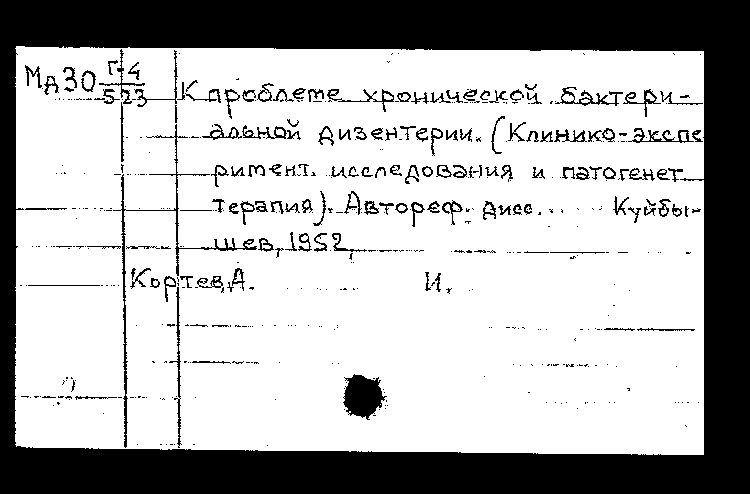 Мд30 Г-4
523
К проблеме хронической бактери-
альной дизентерии. (Клинико-экспе
римент. исследования и патогенет
терапия). Автореф. дисс... Куйбы-
шев, 1952,
Кортев, А. И.